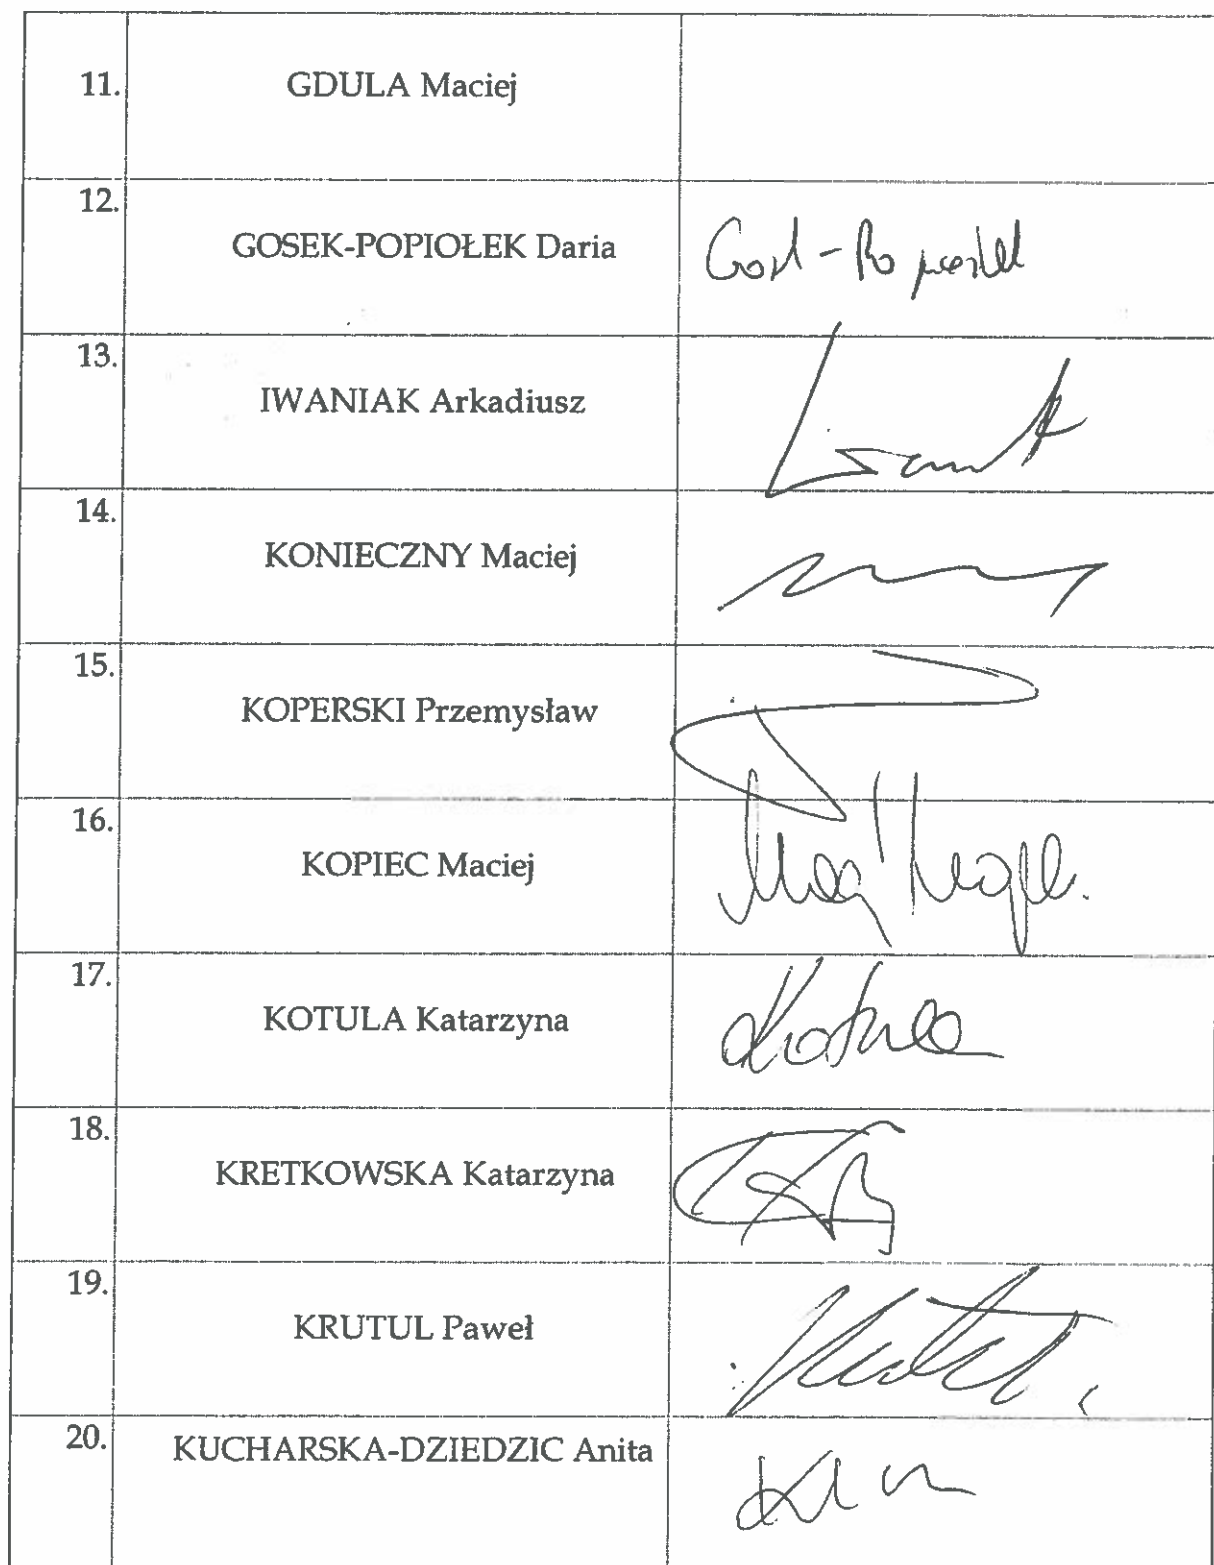 11. GDULA Maciej
12. GOSEK-POPIOŁEK Daria
13. IWANIAK Arkadiusz
14. KONIECZNY Maciej
15. KOPERSKI Przemysław
16. KOPIEC Maciej
17. KOTULA Katarzyna Kotula
18. KRETKOWSKA Katarzyna
19. KRUTUL Paweł
20. KUCHARSKA-DZIEDZIC Anita